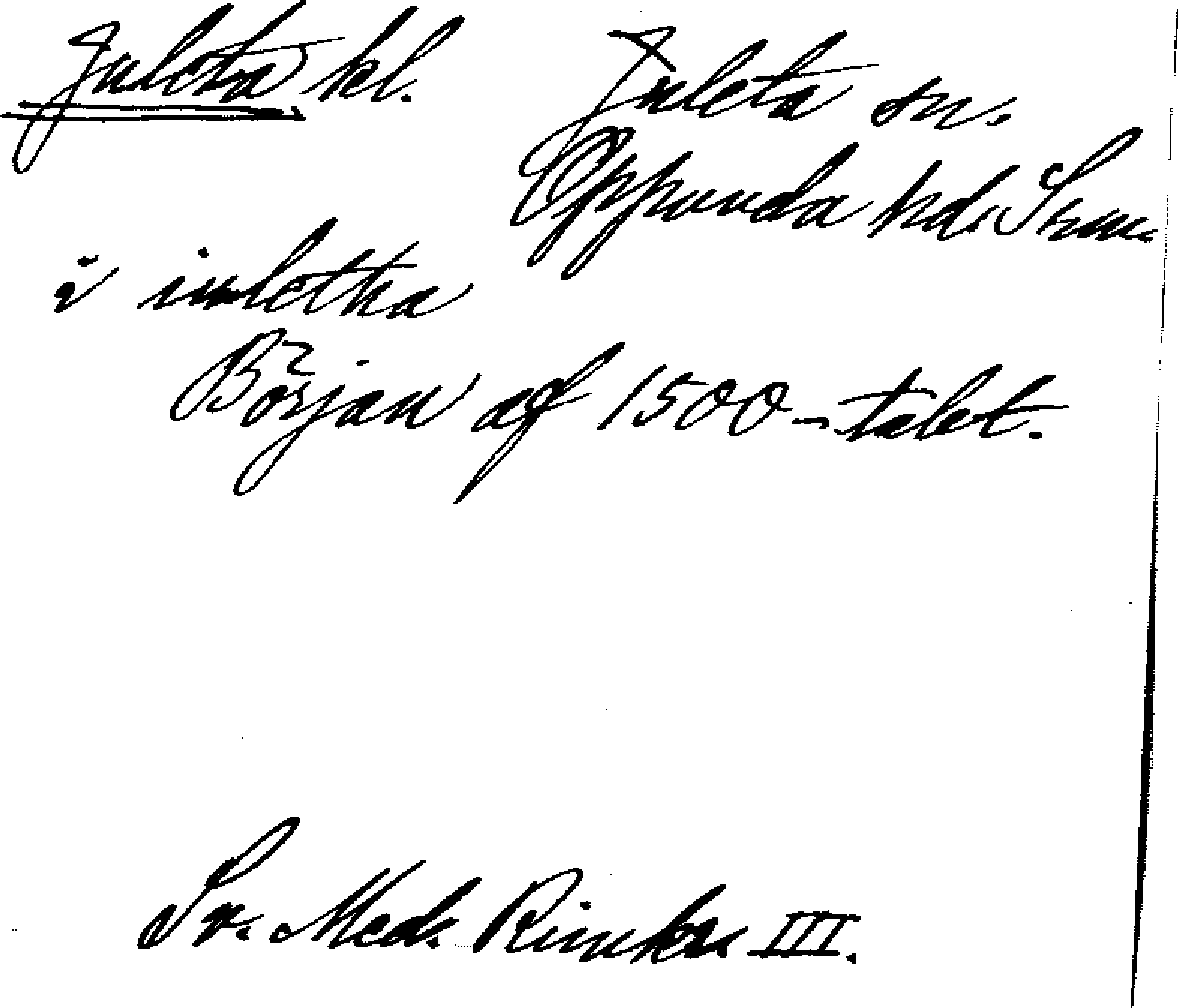 Juleta kl.
Juleta sn.
Oppunda hd. Srm.
i iuletha
Början af 1500-talet.
Sv. Med. Rimkr. III.